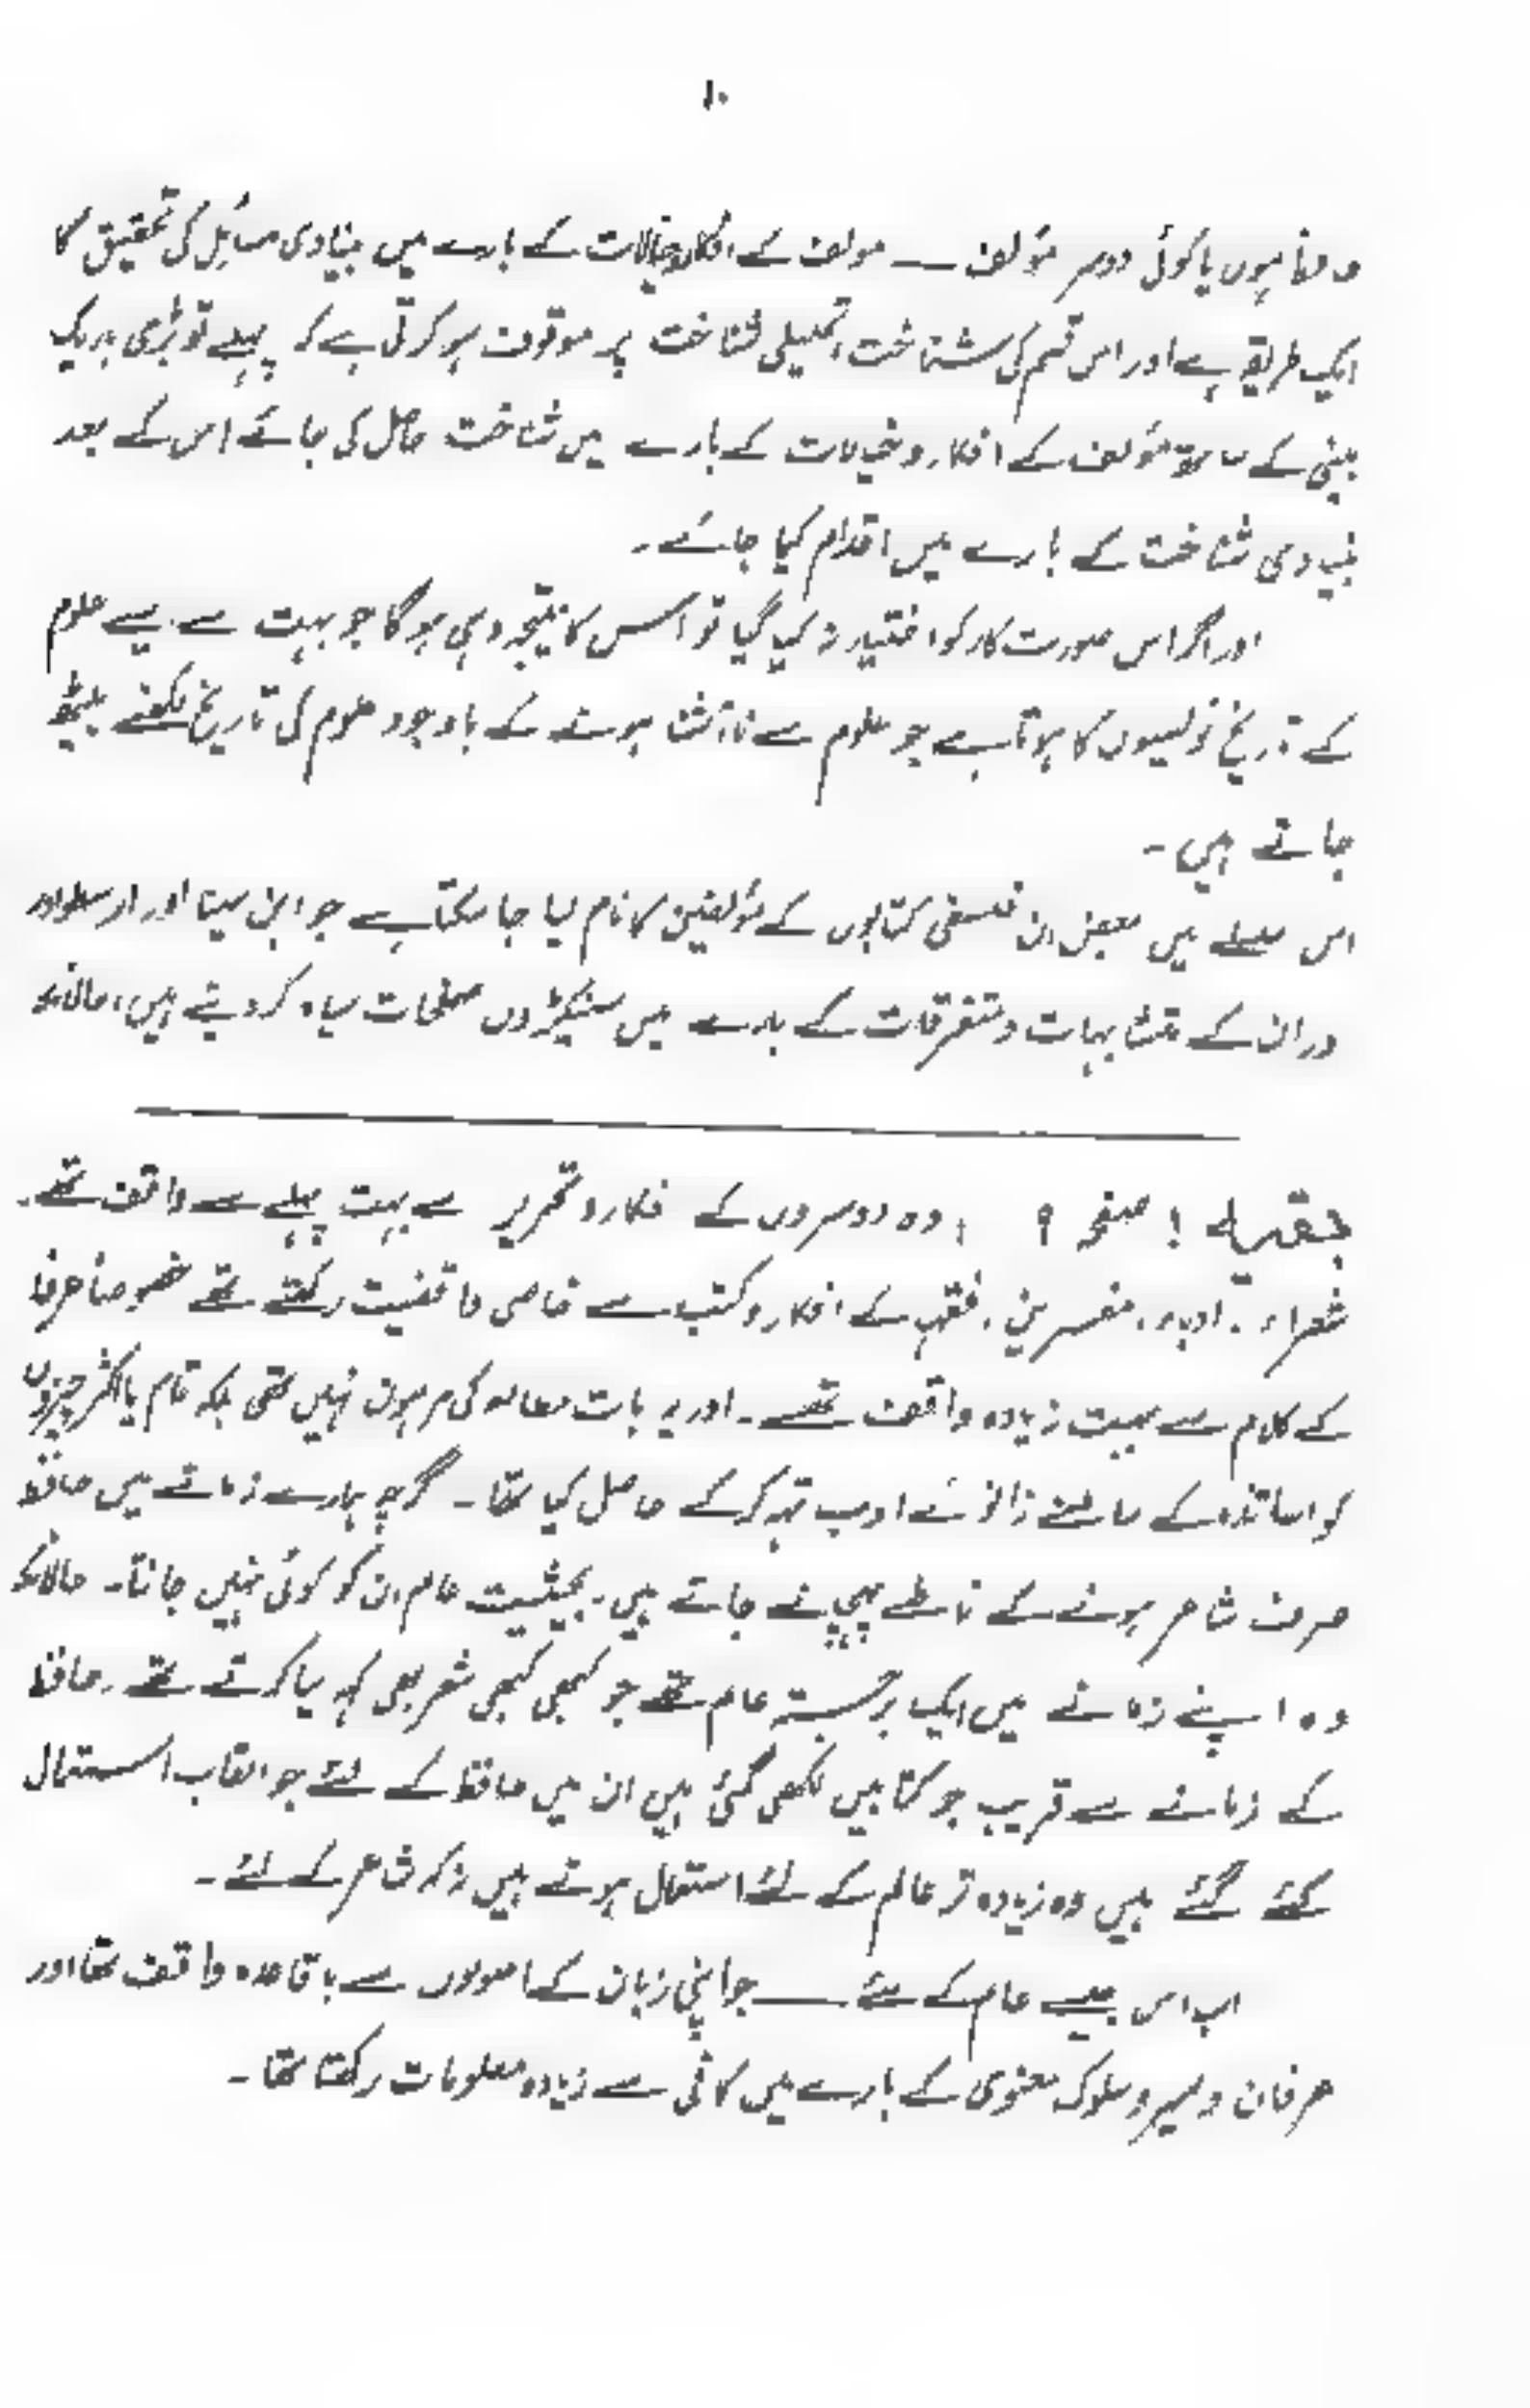 ۱۰
حافظ ہوں یا کوئی دوسر مؤلف — مولف کے افکار وخیالات کے بارے میں بنیادی مسائل کی تحقیق کا
ایک طریقہ ہے اور اس قسم کی شناخت، تحلیلی شناخت پر موقوف ہو کرتی ہے کہ پہلے تو بڑی باریک
بینی کے ساتھ مؤلف کے افکار و خیالات کے بارے میں شناخت حاصل کی جائے اس کے بعد
بنیادی شناخت کے بارے میں اقدام کیا جائے۔
اور اگر اس صورت کار کو اختیار نہ کیا گیا تو اس کا نتیجہ وہی ہوگا جو بہت سے ایسے علوم
کے تاریخ نویسوں کا ہوتا ہے جو علوم سے ناآشنا ہونے کے باوجود علوم کی تاریخ لکھنے بیٹھ
جاتے ہیں۔
اس سلسلے میں بعض ان فلسفی کتابوں کے مؤلفین کا نام لیا جا سکتا ہے جو ابن سینا اور ارسطو اور
در ان کے متشابہات و متفرقات کے بارے میں سینکڑوں صفحات سیاہ کر دیتے ہیں، حالانکہ
بقیہ ! صفحہ ۹ : وہ دوسروں کے فکار و تحریر سے بہت پہلے سے واقف تھے۔
شعراء۔ ادباء، مفسرین، فقہا کے افکار و کتب سے خاصی واقفیت رکھتے تھے خصوصاً عرفا
کے کلام سے بہت زیادہ واقف تھے۔ اور یہ بات مطالعہ کی مرہون نہیں تھی بلکہ تمام یا اکثر چیزوں
کو اساتذہ کے سامنے زانوئے ادب تہہ کرکے حاصل کیا تھا۔ گرچہ ہمارے زمانے میں حافظ
صرف شاعر ہونے کے ناطے پہچانے جاتے ہیں۔ بحیثیت عالم ان کو کوئی نہیں جانتا۔ حالانکہ
وہ اپنے زمانے میں ایک برجستہ عالم تھے جو کبھی کبھی شعر بھی کہہ لیا کرتے تھے۔ حافظ
کے زمانے سے قریب جو کتابیں لکھی گئی ہیں ان میں حافظ کے لئے جو القاب استعمال
کئے گئے ہیں وہ زیادہ تر عالم کے لئے استعمال ہوتے ہیں نہ کہ شاعر کے لئے۔
اب اس جیسے عالم کے لئے — جو اپنی زبان کے اصولوں سے باقاعدہ واقف تھا اور
عرفان و سیر و سلوک معنوی کے بارے میں کافی سے زیادہ معلومات رکھتا تھا۔